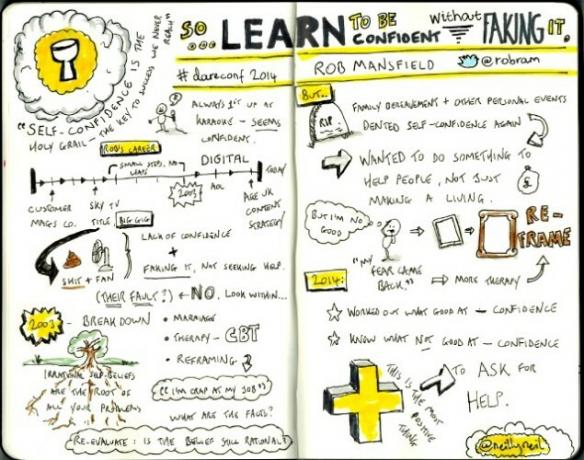 So
... LEARN TO BE CONFIDENT Without FAKING IT.
# dareconf 2014
"SELF-CONFIDENCE IS THE
HOLY GRAIL - THE KEY TO SUCCESS WE NEVER
REACH"
ALWAYS 1ST UP AT
KARAOKE - SEEMS
CONFIDENT.
ROB'S CAREER
SMALL STEPS, NO
LEAPS
DIGITAL
TODAY
CUSTOMER
MAGS CO.
SKY TV
TITLE.
2003
AOL
AGE UK
CONTENT
STRATEGY
BIG GIG
SHIT + FAN
LACK OF CONFIDENCE
+
FAKING IT, NOT SEEKING HELP.
(THEIR FAULT?) ← NO. LOOK WITHIN...
2003 - BREAKDOWN
• MARRIAGE
• THERAPY - CBT
• REFRAMING
IRRATIONAL SELF-BELIEFS
ARE THE ROOT OF
ALL YOUR PROBLEMS
"I'M CRAP AT MY JOB"
WHAT ARE THE FACTS?
RE-EVALUATE: IS THE BELIEF STILL RATIONAL?
ROB MANSFIELD @robram
BUT...
RIP
FAMILY BEREAVEMENT + OTHER PERSONAL EVENTS
DENTED SELF-CONFIDENCE AGAIN
WANTED TO DO SOMETHING TO
HELP PEOPLE, NOT JUST
MAKING A LIVING.
£
BUT I'M NO
GOOD
RE-
FRAME
"MY
FEAR CAME
BACK." → MORE THERAPY
2014:
WORKED OUT WHAT GOOD AT - CONFIDENCE
KNOW WHAT NOT GOOD AT - CONFIDENCE
TO ASK FOR
HELP.
THIS IS THE MOST
POSITIVE
THING
@neillyneil